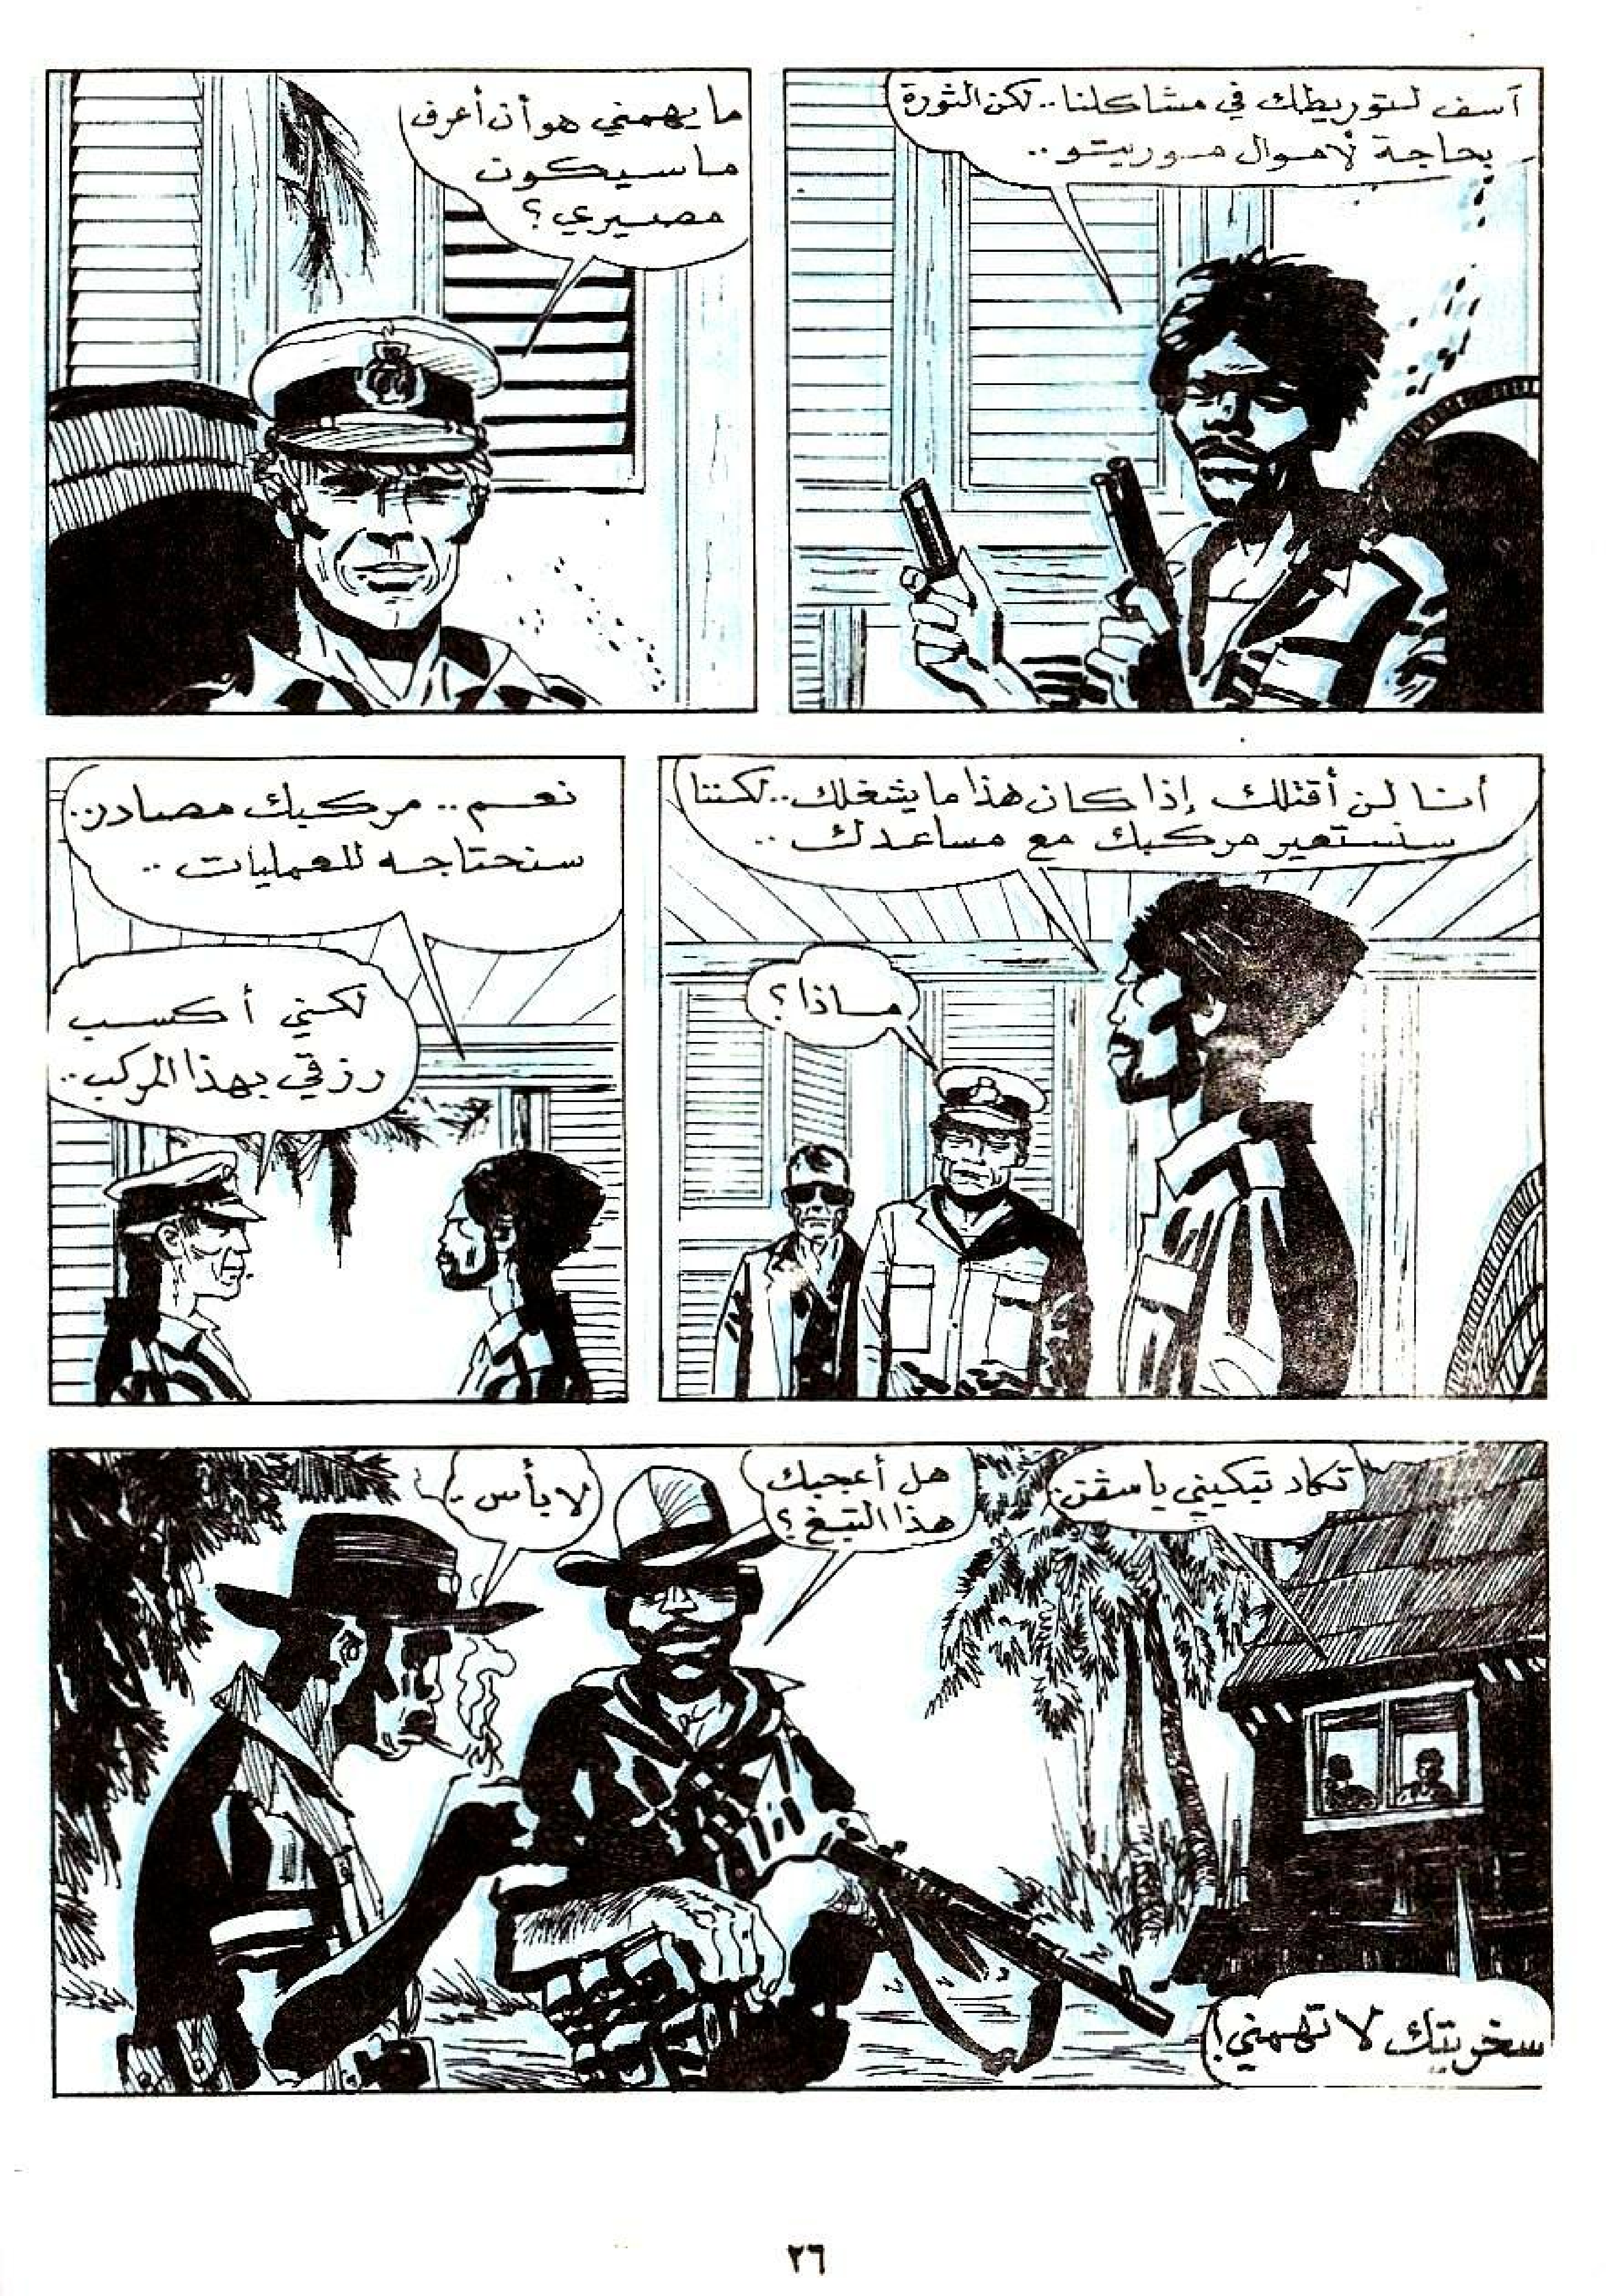 آسف لتوريطك في مشاكلنا.. لكن الثورة
بحاجة لأموال موريتو..
ما يهمني هو أن أعرف
ما سيكون
مصيري؟
أنا لن أقتلك إذا كان هذا ما يشغلك.. لكننا
سنستعير مركبك مع مساعدك..
ماذا؟
نعم.. مركبك مصادر..
سنحتاجه للعمليات..
لكني أكسب
رزقي بهذا المركب..
تكاد تبكيني يا سڤن.
هل أعجبك
هذا التبغ؟
لا بأس..
سخريتك لا تهمني!
٢٦